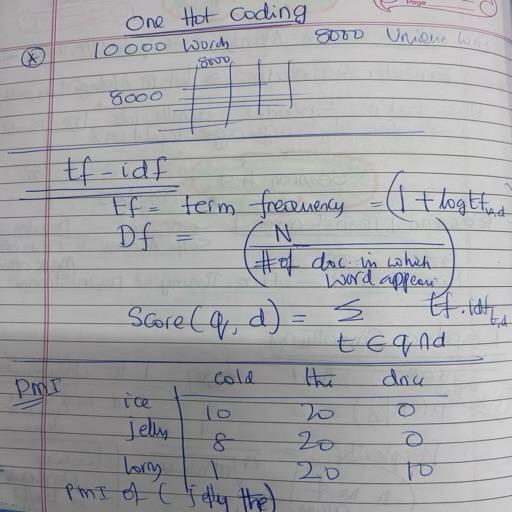 Page
One Hot Coding
10000 Words 8000 Unique
8000
8000
tf-idf
tf = term frequency = (1 + log tft,d
Df = ( N
# of doc. in which
word appear )
Score(q, d) = Σ tf.idft,d
t ∈ q∩d
PMI cold the
ice 10 20 0
Jelly 8 20 0
1 20 10
PMI of ( jelly the)